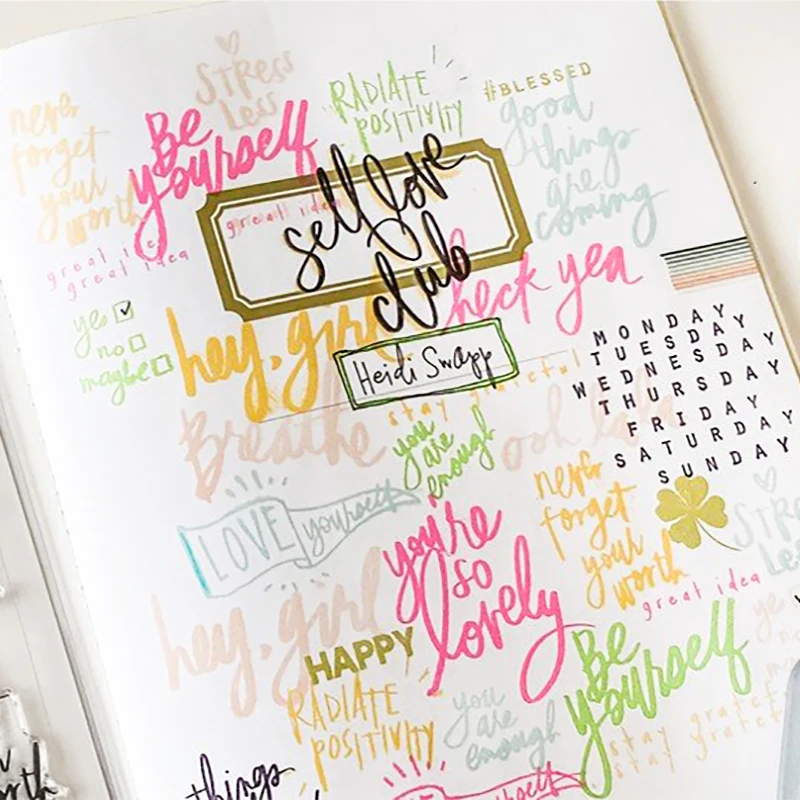 STRESS
Less
RADIATE
POSITIVITY
#BLESSED
never
forget
your
worth
Be
yourself
good
things
are
coming
great idea
self love
club
great idea
heck yea
yes
no
maybe
hey, girl
Heidi Swapp
MONDAY
TUESDAY
WEDNESDAY
THURSDAY
FRIDAY
SATURDAY
SUNDAY
stay grateful
Breathe
you
are
enough
ooh lala
LOVE yourself
never
forget
your
worth
you're
so
lovely
great idea
hey, girl
HAPPY
RADIATE
POSITIVITY
you
are
enough
Be
yourself
things